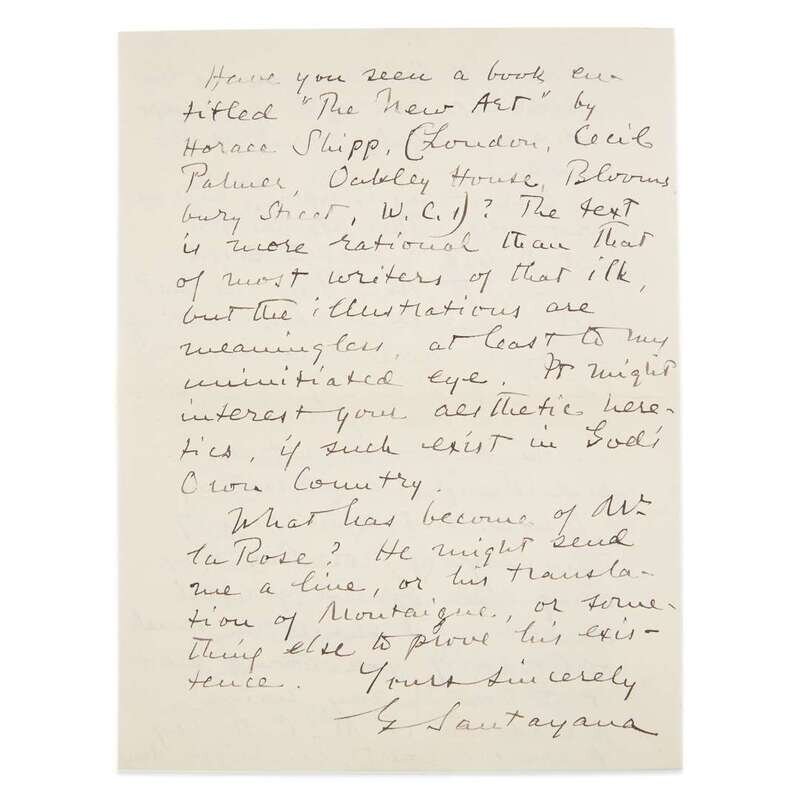 Have you seen a book en-
titled "The New Art" by
Horace Shipp, (London, Cecil
Palmer, Oakley House, Blooms
bury Street, W.C.1)? The text
is more rational than that
of most writers of that ilk,
but the illustrations are
meaningless, at least to my
uninitiated eye. It might
interest your aesthetic here-
tics, if such exist in God's
Own Country.
What has become of Mr
la Rose? He might send
me a line, or his transla-
tion of Montaigne, or some-
thing else to prove his exis-
tence. Yours sincerely
G Santayana